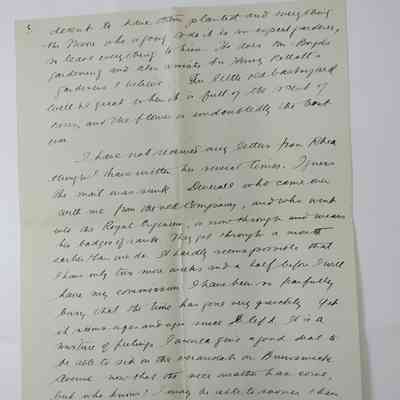 decent to have them planted and everything
the man who is going to do it is an expert gardener,
so leave everything to him. He does Mr.
gardening and also assists Sir Henry
gardeners I believe. The little old backyard
will be great when it is full of the scent of
roses, and the flower is undoubtedly the best
one.
I have not received any letters from Rhea
though I have written her several times. I guess
the mail was sunk. who came over
with me from the old Company, and who went
into the Royal Engineers, is now through and wears
his badges of rank. They get through a month
earlier than we do. It hardly seems possible that
I have only two more weeks and a half before I will
have my commission. I have been so fearfully
busy that the time has gone very quickly. Yet
it seems ages and ages since I left. It is a
mixture of feelings. I would give a good deal to
be able to sit on the verandah on Brunswick
Avenue now that the nice weather has come,
but who knows? I may be able to sooner than